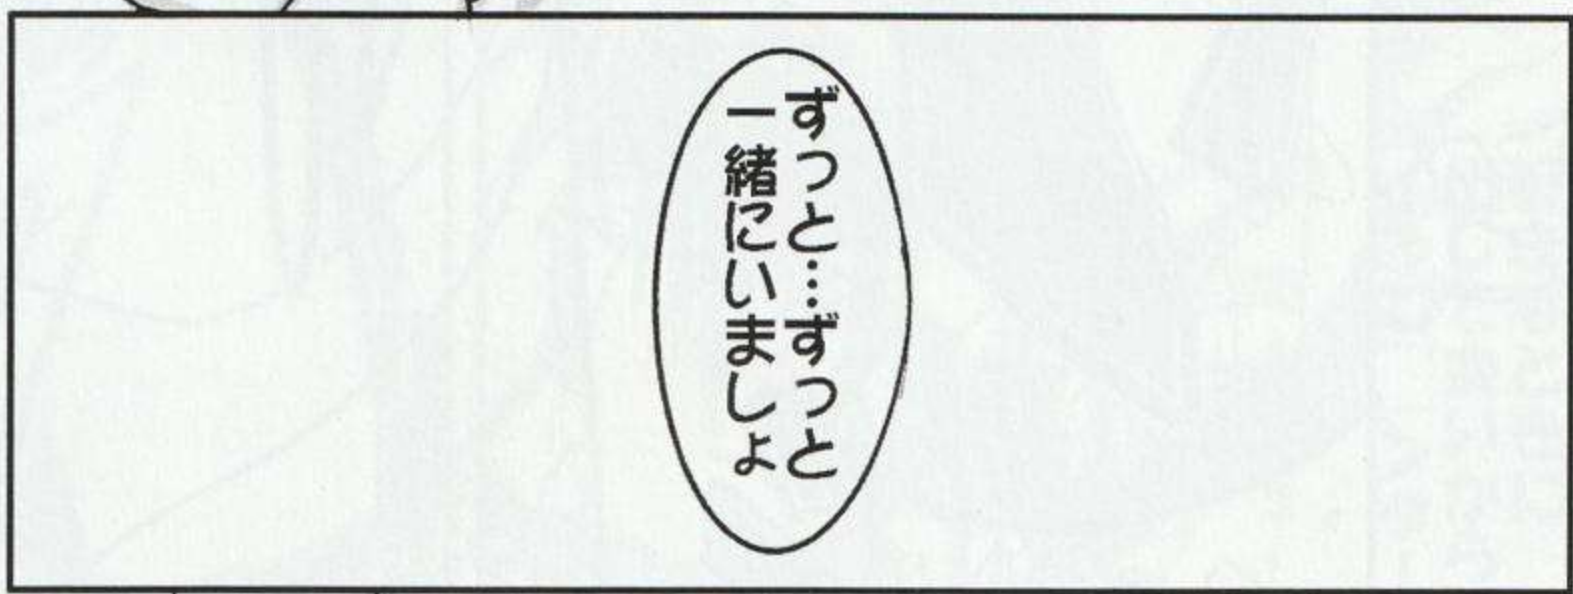 ずっと…ずっと
一緒にいましょ